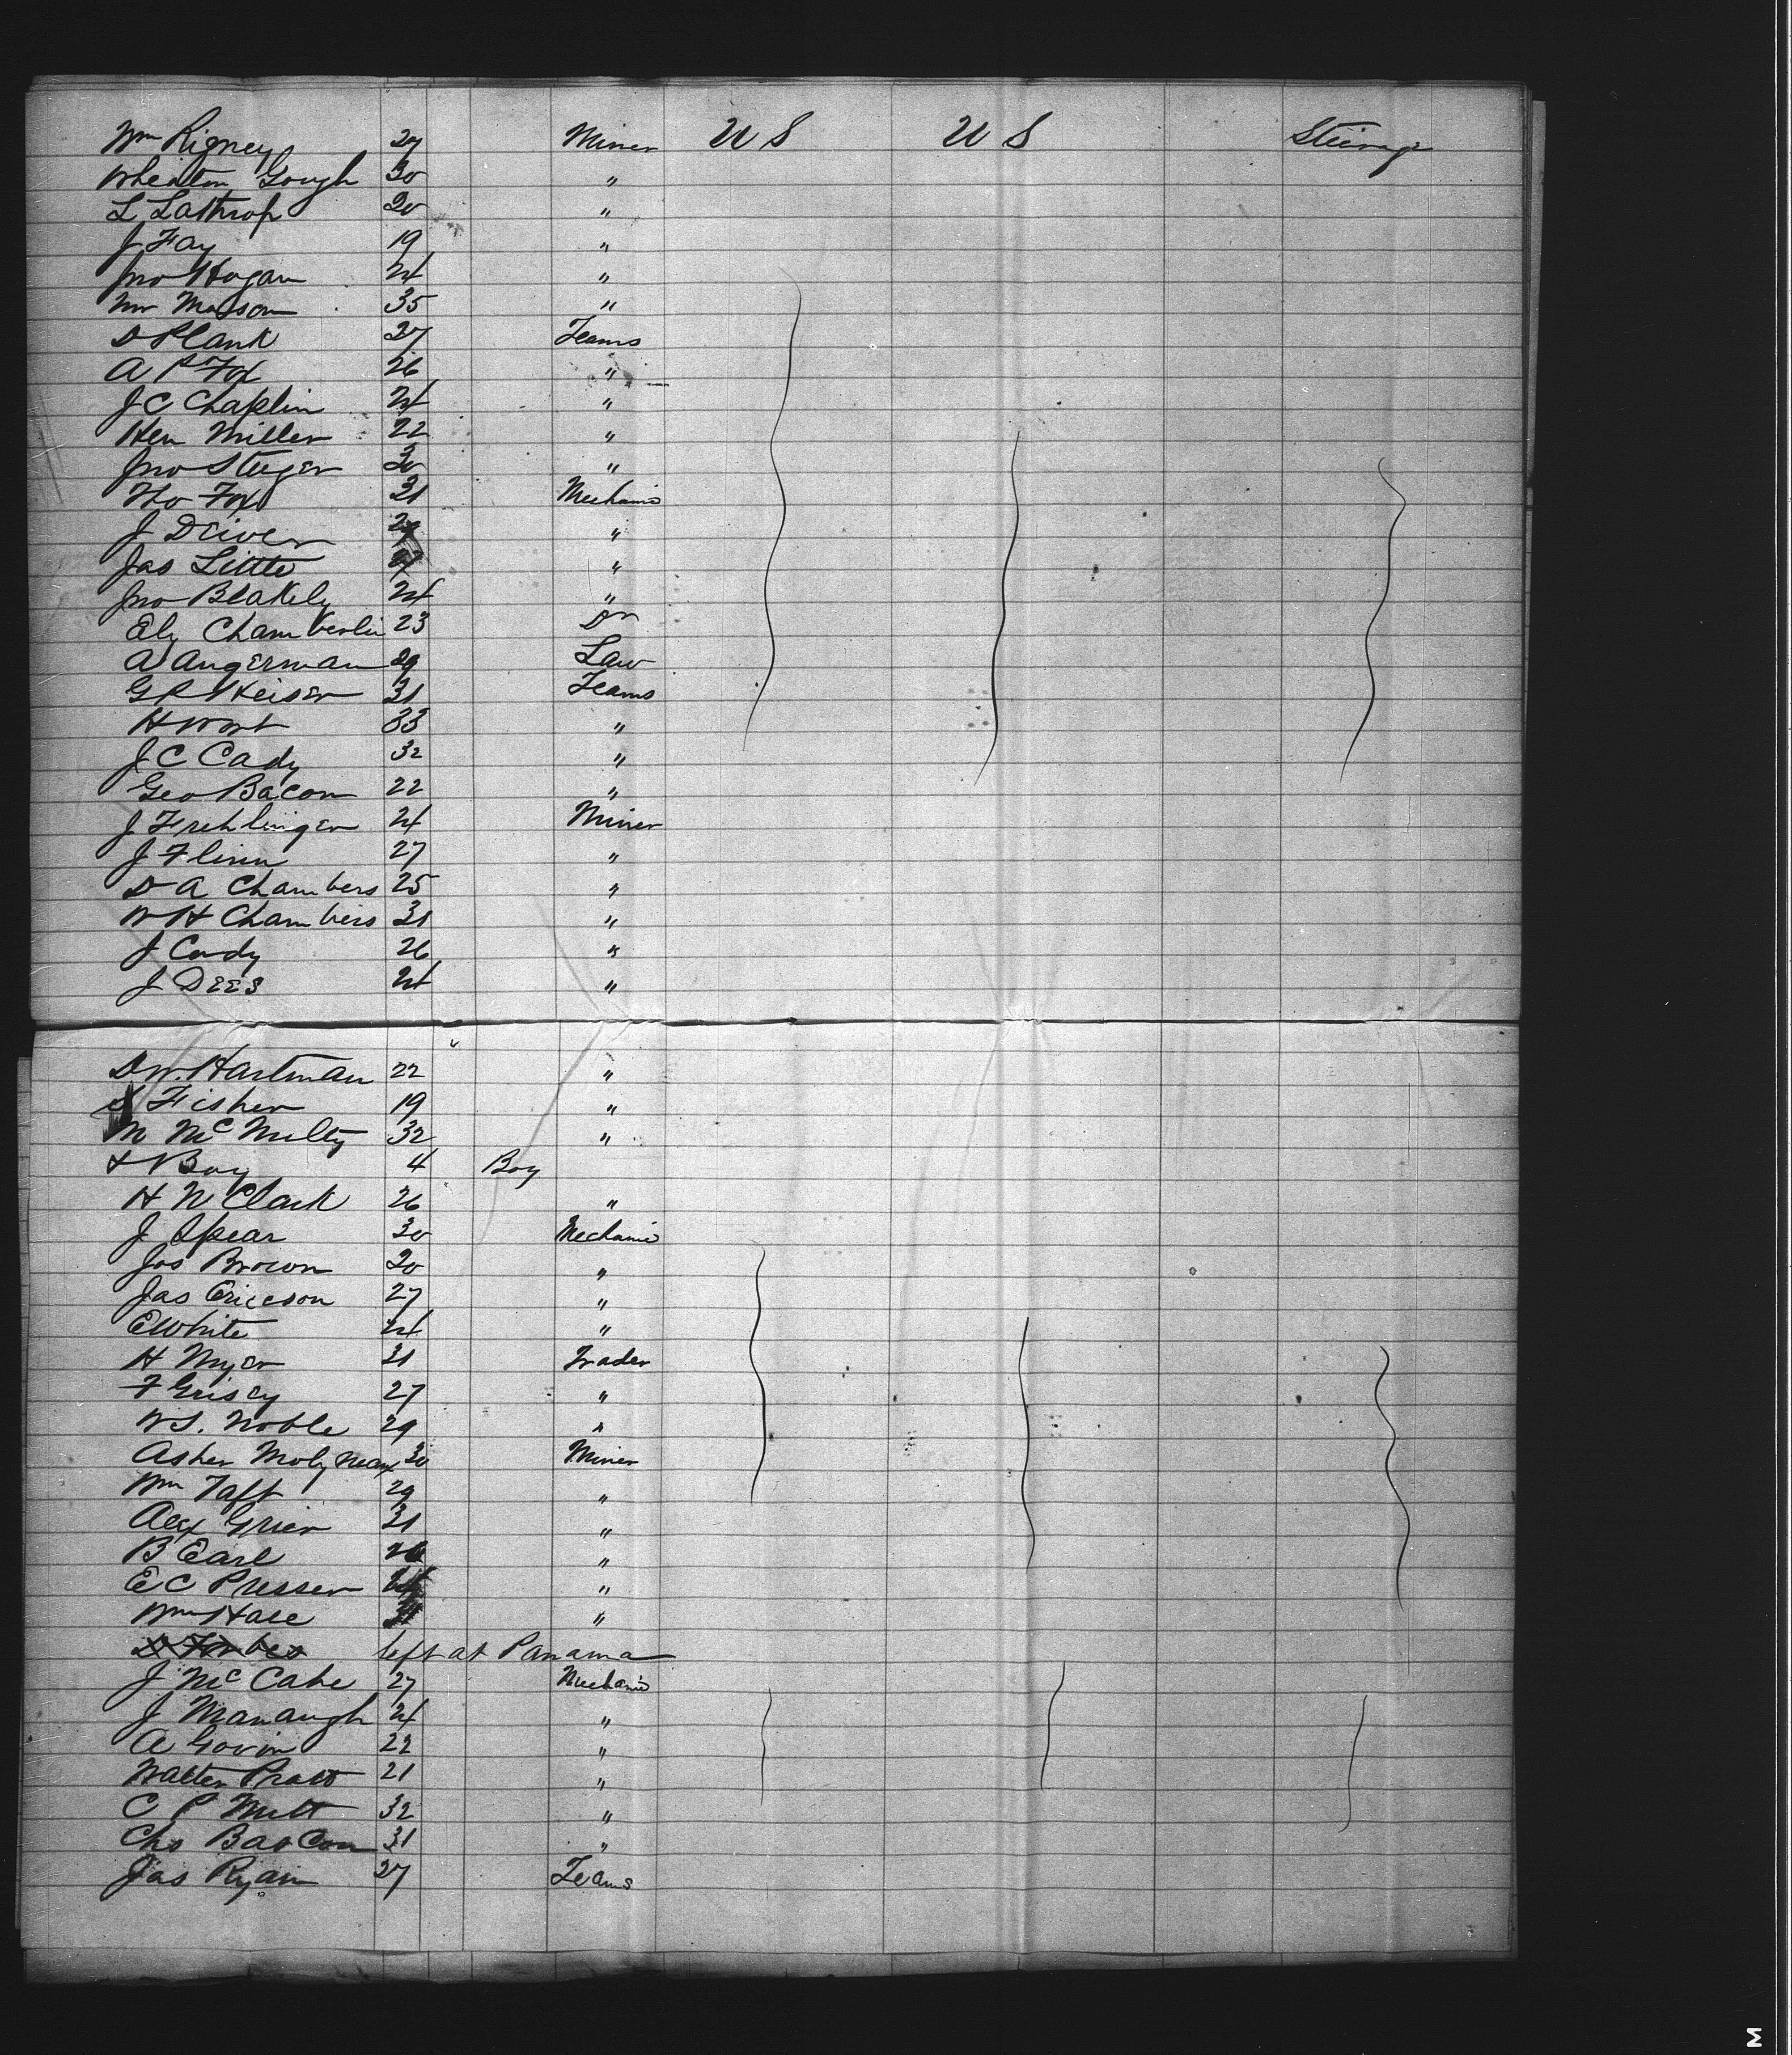 Wm Rigney 27 Miner U S U S Steerage
Wheaton Gough 30 "
L Lathrop 20 "
J Fay 19 "
Jno Hogan 24 "
Wm Mason 35 "
D Plank 27 Teams
A P Fox 26 "
J C Chaplin 24 "
Hen Miller 22 "
Jno Steiger 30 "
Tho Fox 31 Mechanic
J Driver "
Jas Little "
Jno Blakely 24 "
Ely Chamberlin 23 Dr
A Angerman 29 Law
G R Heiser 31 Teams
H Wort 33 "
J C Cady 32 "
Geo Bacon 22 "
J Frehlinger 24 Miner
J Flinn 27 "
D A Chambers 25 "
W H Chambers 31 "
J Cady 26 "
J Dees 24 "
D W. Hartman 22 "
Fisher 19 "
M McNulty 32 "
& Boy 4 Boy
H W Clark 26 "
J Spear 30 Mechanic
Jas Brown 20 "
Jas Ericson 27 "
E White 24 "
H Myer 31 Trader
F Grisey 27 "
W S. Noble 29 "
Asher Molyneax 30 Miner
Wm Taft 29 "
Alex Grier 31 "
B Earl 26 "
E C Presser "
Wm Hall 31 "
D Forbes left at Panama
J McCabe 27 Mechanic
J Manaugh 24 "
A Govin 22 "
Walter Pratt 21 "
C P 32 "
Chs Bascom 31 "
Jas Ryan 27 Teams
M